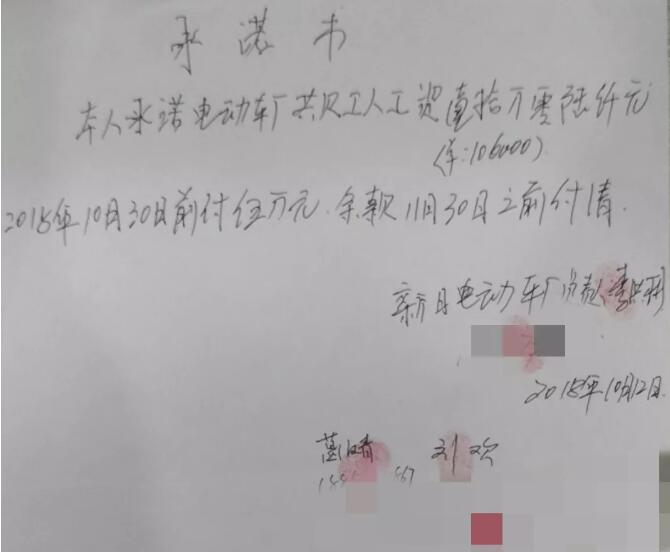 承诺书
本人承诺电动车厂共欠工人工资壹拾万零陆仟元
(¥:106000)
2018年10月30日前付伍万元.余款11月30日之前付清.
新日电动车厂负责
2018年10月12日.
刘欢